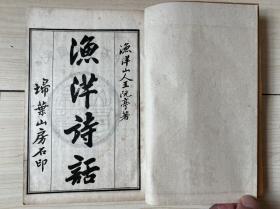 漁洋山人王阮亭著
漁洋詩話
埽葉山房石印